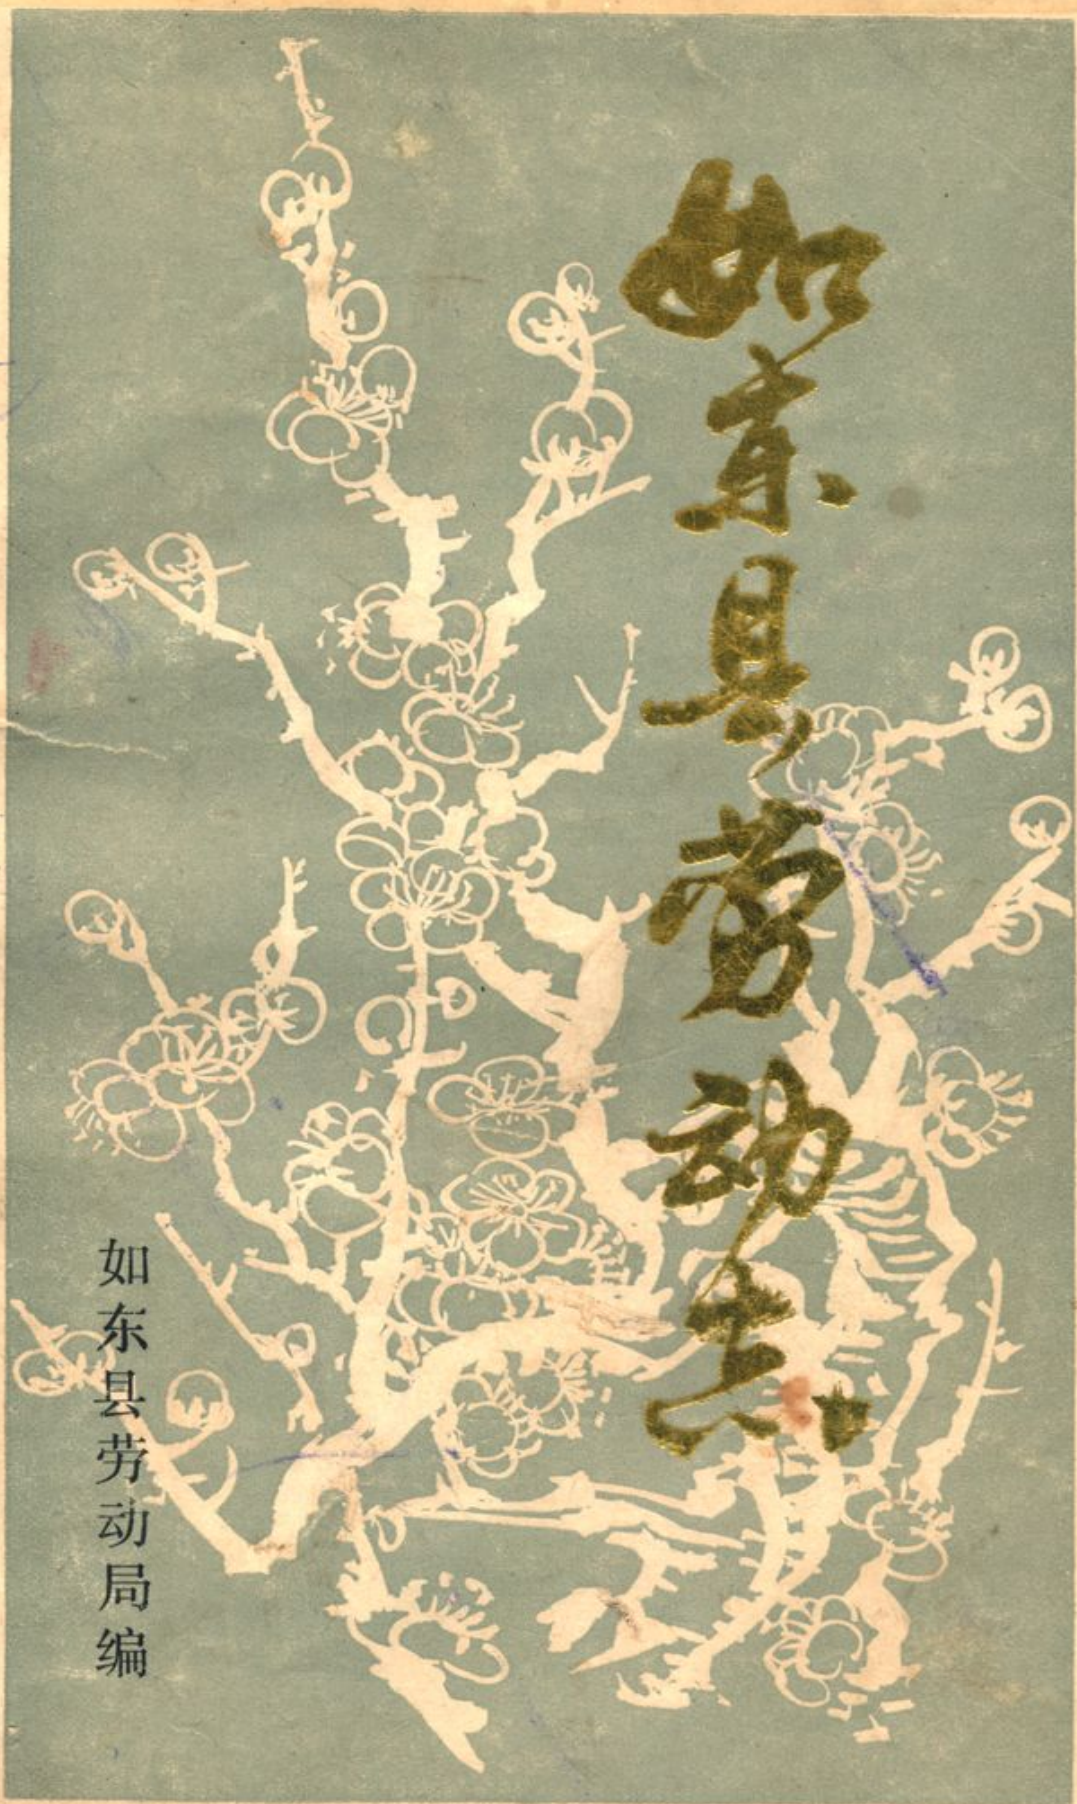 如东县劳动志
如东县劳动局编